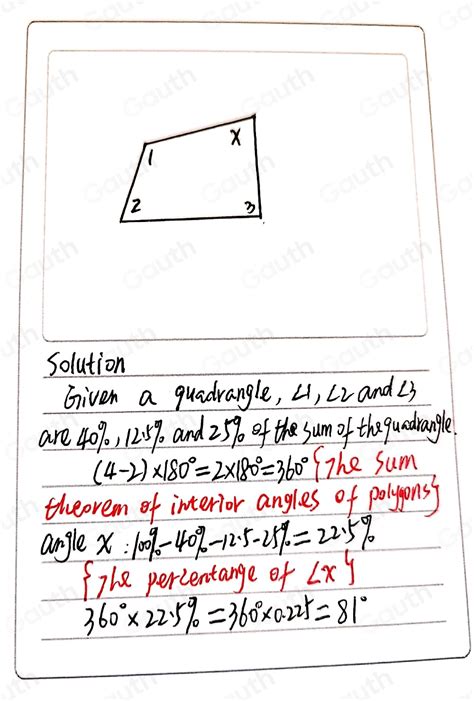 x
1
2
3
Solution
Given a quadrangle, ∠1, ∠2 and ∠3
are 40%, 12.5% and 25% of the sum of the quadrangle.
(4-2)×180°=2×180°=360° {The sum
theorem of interior angles of polygons}
angle x : 100%-40%-12.5-25%=22.5%
{The percentange of ∠x}
360°×22.5%=360°×0.225=81°
Gauth